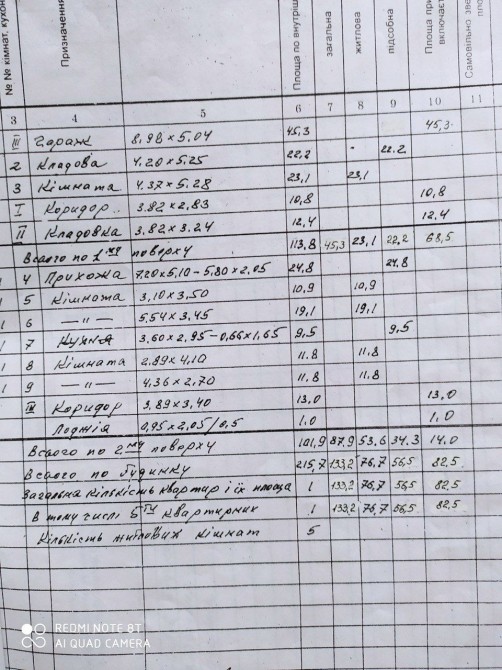 № № кімнат, кухон
Призначення
Площа по внутріш
загальна
житлова
підсобна
Площа при
включаєт
Самовільно зве
3 4 5 6 7 8 9 10 11
III Гараж 8,98 × 5.04 45,3 45,3
2 Кладова 4.20 × 5.25 22,2 22.2
3 Кімната 4.37 × 5.28 23,1 23,1
I Коридор 3.82 × 2,83 10,8 10,8
II Кладовка 3.82 × 3.24 12,4 12,4
Всього по 1му поверху 113,8 45,3 23,1 22,2 68,5
1 4 Прихожа 7.20 × 5,10 - 5,80 × 2.05 24,8 24,8
1 5 Кімната 3,10 × 3,50 10,9 10,9
1 6 — " — 5,54 × 3,45 19,1 19,1
1 7 Кухня 3,60 × 2,95 - 0,66 × 1,65 9,5 9,5
1 8 Кімната 2,89 × 4,10 11,8 11,8
1 9 — " — 4,36 × 2,70 11,8 11,8
III Коридор 3.89 × 3,40 13,0 13,0
Лоджія 0,95 × 2,05 / 0,5 1,0 1,0
Всього по 2му поверху 101,9 87,9 53,6 34,3 14,0
Всього по будинку 215,7 133,2 76,7 56,5 82,5
Загальна кількість квартир і їх площа 1 133,2 76,7 56,5 82,5
В тому числі 5ти квартирних 1 133,2 76,7 56,5 82,5
Кількість житлових кімнат 5
REDMI NOTE 8T
AI QUAD CAMERA